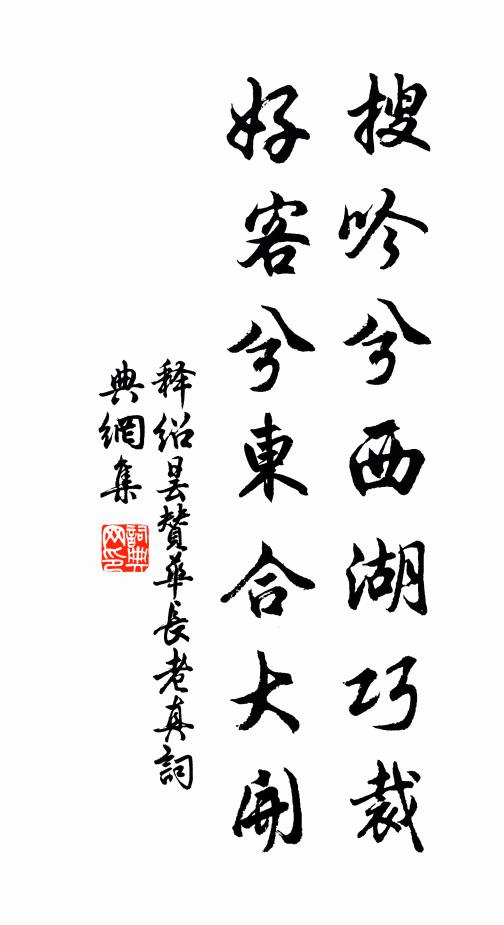 搜吟兮西湖巧裁
好客兮東合大開
释紹曇贊華長老真詞
典網集
詞典網印